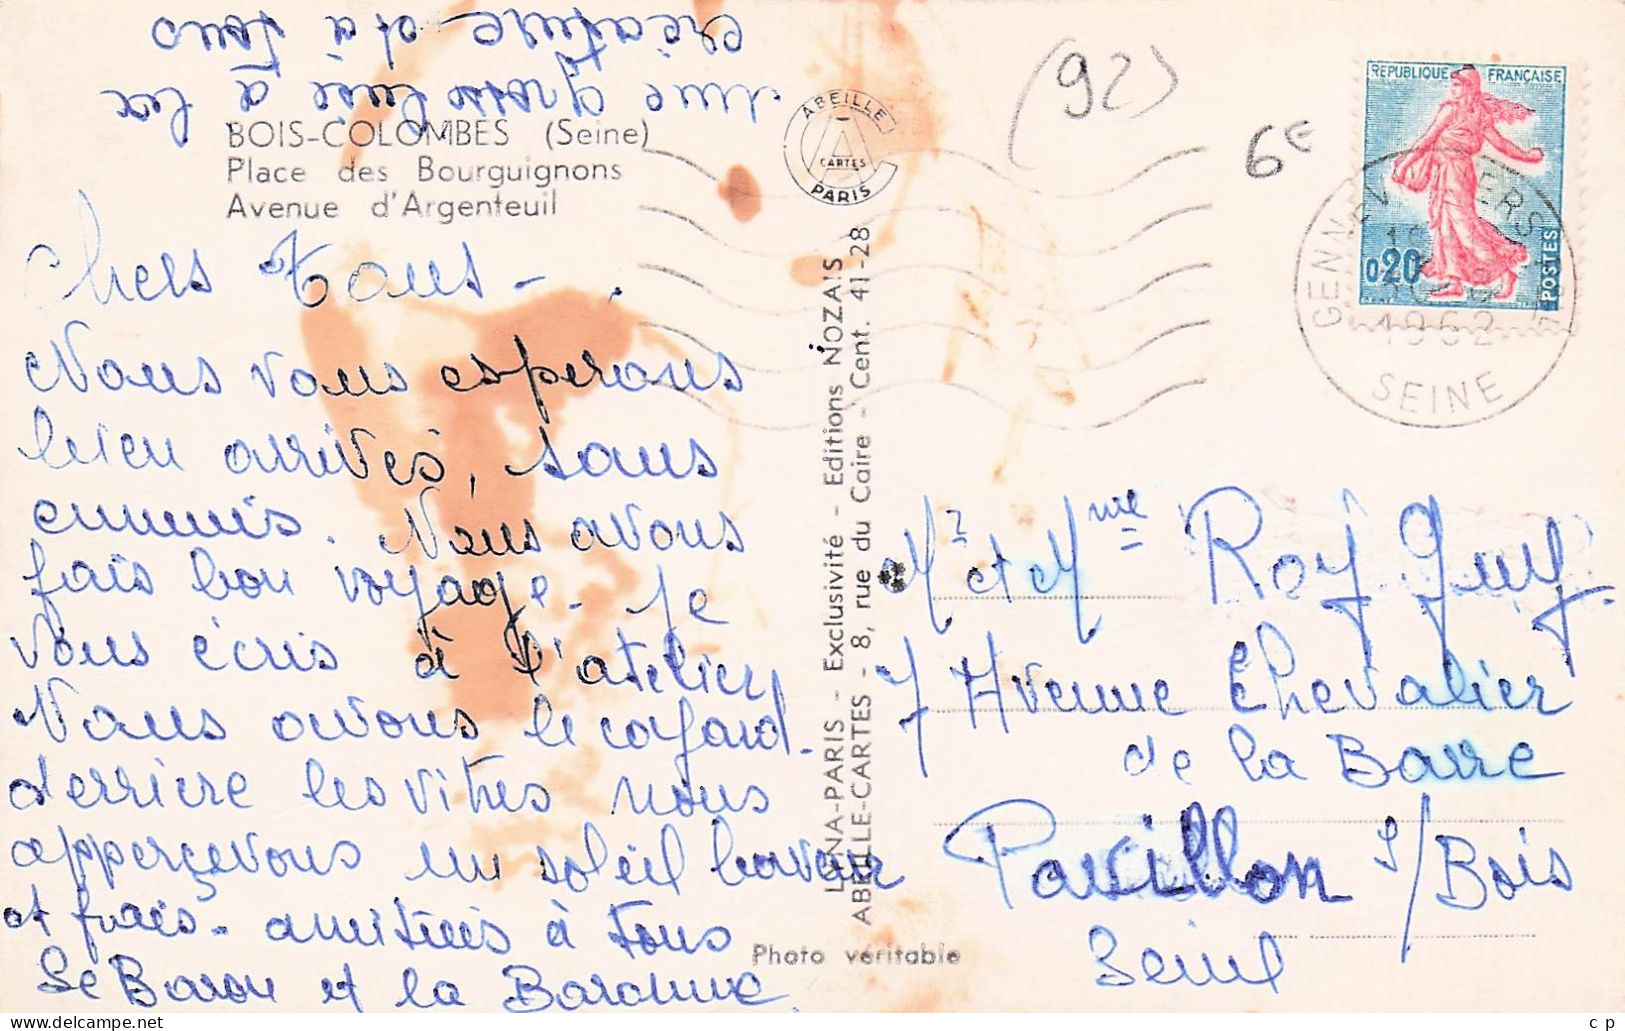 BOIS-COLOMBES (Seine)
Place des Bourguignons
Avenue d'Argenteuil
Chers Tous -
Nous vous esperons
bien arrivés, sans
ennuis. Nous avons
fais bon voyage - Je
vous écris à l'atelier
Nous avons le cafard -
derrière les vitres nous
apperçevons un soleil
et frais - amitiés à tous
Le Baron et la Baronne
une grosse bise à la
créature et à tous
ABEILLE
CARTES
PARIS
LYNA-PARIS - Exclusivité - Editions NOZAIS
ABEILLE-CARTES - 8, rue du Caire - Cent. 41-28
Photo véritable
(92)
6€
REPUBLIQUE FRANÇAISE
0,20
POSTES
GENNEVILLIERS
1962
SEINE
Mr et Mme Roy Guy
7 Avenue Chevalier
de la Barre
Pavillon s/Bois
Seine
c p